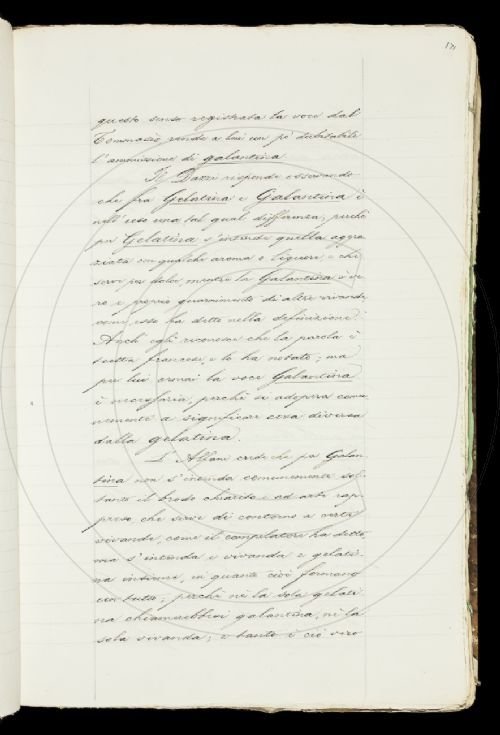 171
questo senso registrata la voce dal
Tommaseo rende a lui un po' dubitabile
l'ammissione di galantina.
Il Dazzi risponde osservando
che fra Gelatina e Galantina è
nell'uso una tal qual differenza; perchè
per Gelatina s'intende quella aggra
ziata con qualche aroma o liquore, e che
serve per dolce, mentre la Galantina è ve
ro e proprio guarnimento di altre vivande
come esso ha detto nella definizione.
Anch'egli riconosce che la parola è
pretta francese, e lo ha notato; ma
per lui ormai la voce Galantina
è necessaria, perchè si adopera comu
nemente a significare cosa diversa
dalla gelatina.
L'Alfani crede che per Galan-
tina non s'intenda comunemente sol-
tanto il brodo chiarito e ad arte rap-
preso che serve di contorno a certe
vivande, come il compilatore ha detto,
ma s'intenda e vivanda e gelati-
na insieme, in quanto cioè formano
un tutto; perchè nè la sola gelati-
na chiamerebbesi galantina, nè la
sola vivanda; e tanto è ciò vero